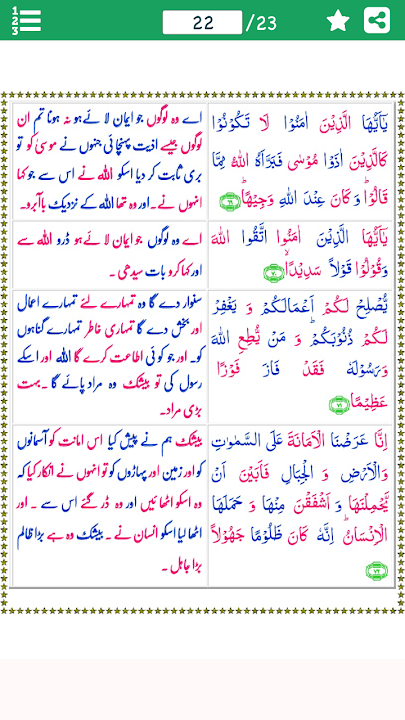 1
2
3
22
/23
یٰۤاَیُّهَا الَّذِیْنَ اٰمَنُوْا لَا تَكُوْنُوْا
كَالَّذِیْنَ اٰذَوْا مُوْسٰی فَبَرَّاَهُ اللّٰهُ مِمَّا
قَالُوْا ؕ وَ كَانَ عِنْدَ اللّٰهِ وَجِیْهًا ؕ ۶۹
اے وہ لوگوں جو ایمان لائے ہو نہ ہونا تم ان
لوگوں جیسے اذیت پہنچائی جنہوں نے موسیٰ کو تو
بری ثابت کر دیا اسکو اللہ نے اس سے جو کہا
انہوں نے۔ اور وہ تھا اللہ کے نزدیک باآبرو۔
یٰۤاَیُّهَا الَّذِیْنَ اٰمَنُوا اتَّقُوا اللّٰهَ
وَ قُوْلُوْا قَوْلًا سَدِیْدًا ۙ ۷۰
اے وہ لوگوں جو ایمان لائے ہو ڈرو اللہ سے
اور کہا کرو بات سیدھی ۔
یُّصْلِحْ لَكُمْ اَعْمَالَكُمْ وَ یَغْفِرْ
لَكُمْ ذُنُوْبَكُمْ ؕ وَ مَنْ یُّطِعِ اللّٰهَ
وَ رَسُوْلَهٗ فَقَدْ فَازَ فَوْزًا
عَظِیْمًا ۷۱
سنوار دے گا وہ تمہارے لئے تمہارے اعمال
اور بخش دے گا تمہاری خاطر تمہارے گناہوں
کو۔ اور جو کوئی اطاعت کرے گا اللہ اور اسکے
رسول کی تو بیشک وہ مراد پائے گا ۔ بہت
بڑی مراد۔
اِنَّا عَرَضْنَا الْاَمَانَةَ عَلَی السَّمٰوٰتِ
وَ الْاَرْضِ وَ الْجِبَالِ فَاَبَیْنَ اَنْ
یَّحْمِلْنَهَا وَ اَشْفَقْنَ مِنْهَا وَ حَمَلَهَا
الْاِنْسَانُ ؕ اِنَّهٗ كَانَ ظَلُوْمًا جَهُوْلًا
۷۲
بیشک ہم نے پیش کیا اس امانت کو آسمانوں
کو اور زمین اور پہاڑوں کو تو انہوں نے انکار کیا کہ
وہ اسکو اٹھائیں اور وہ ڈر گئے اس سے ۔ اور
اٹھا لیا اسکو انسان نے ۔ بیشک وہ ہے بڑا ظالم
بڑا جاہل ۔